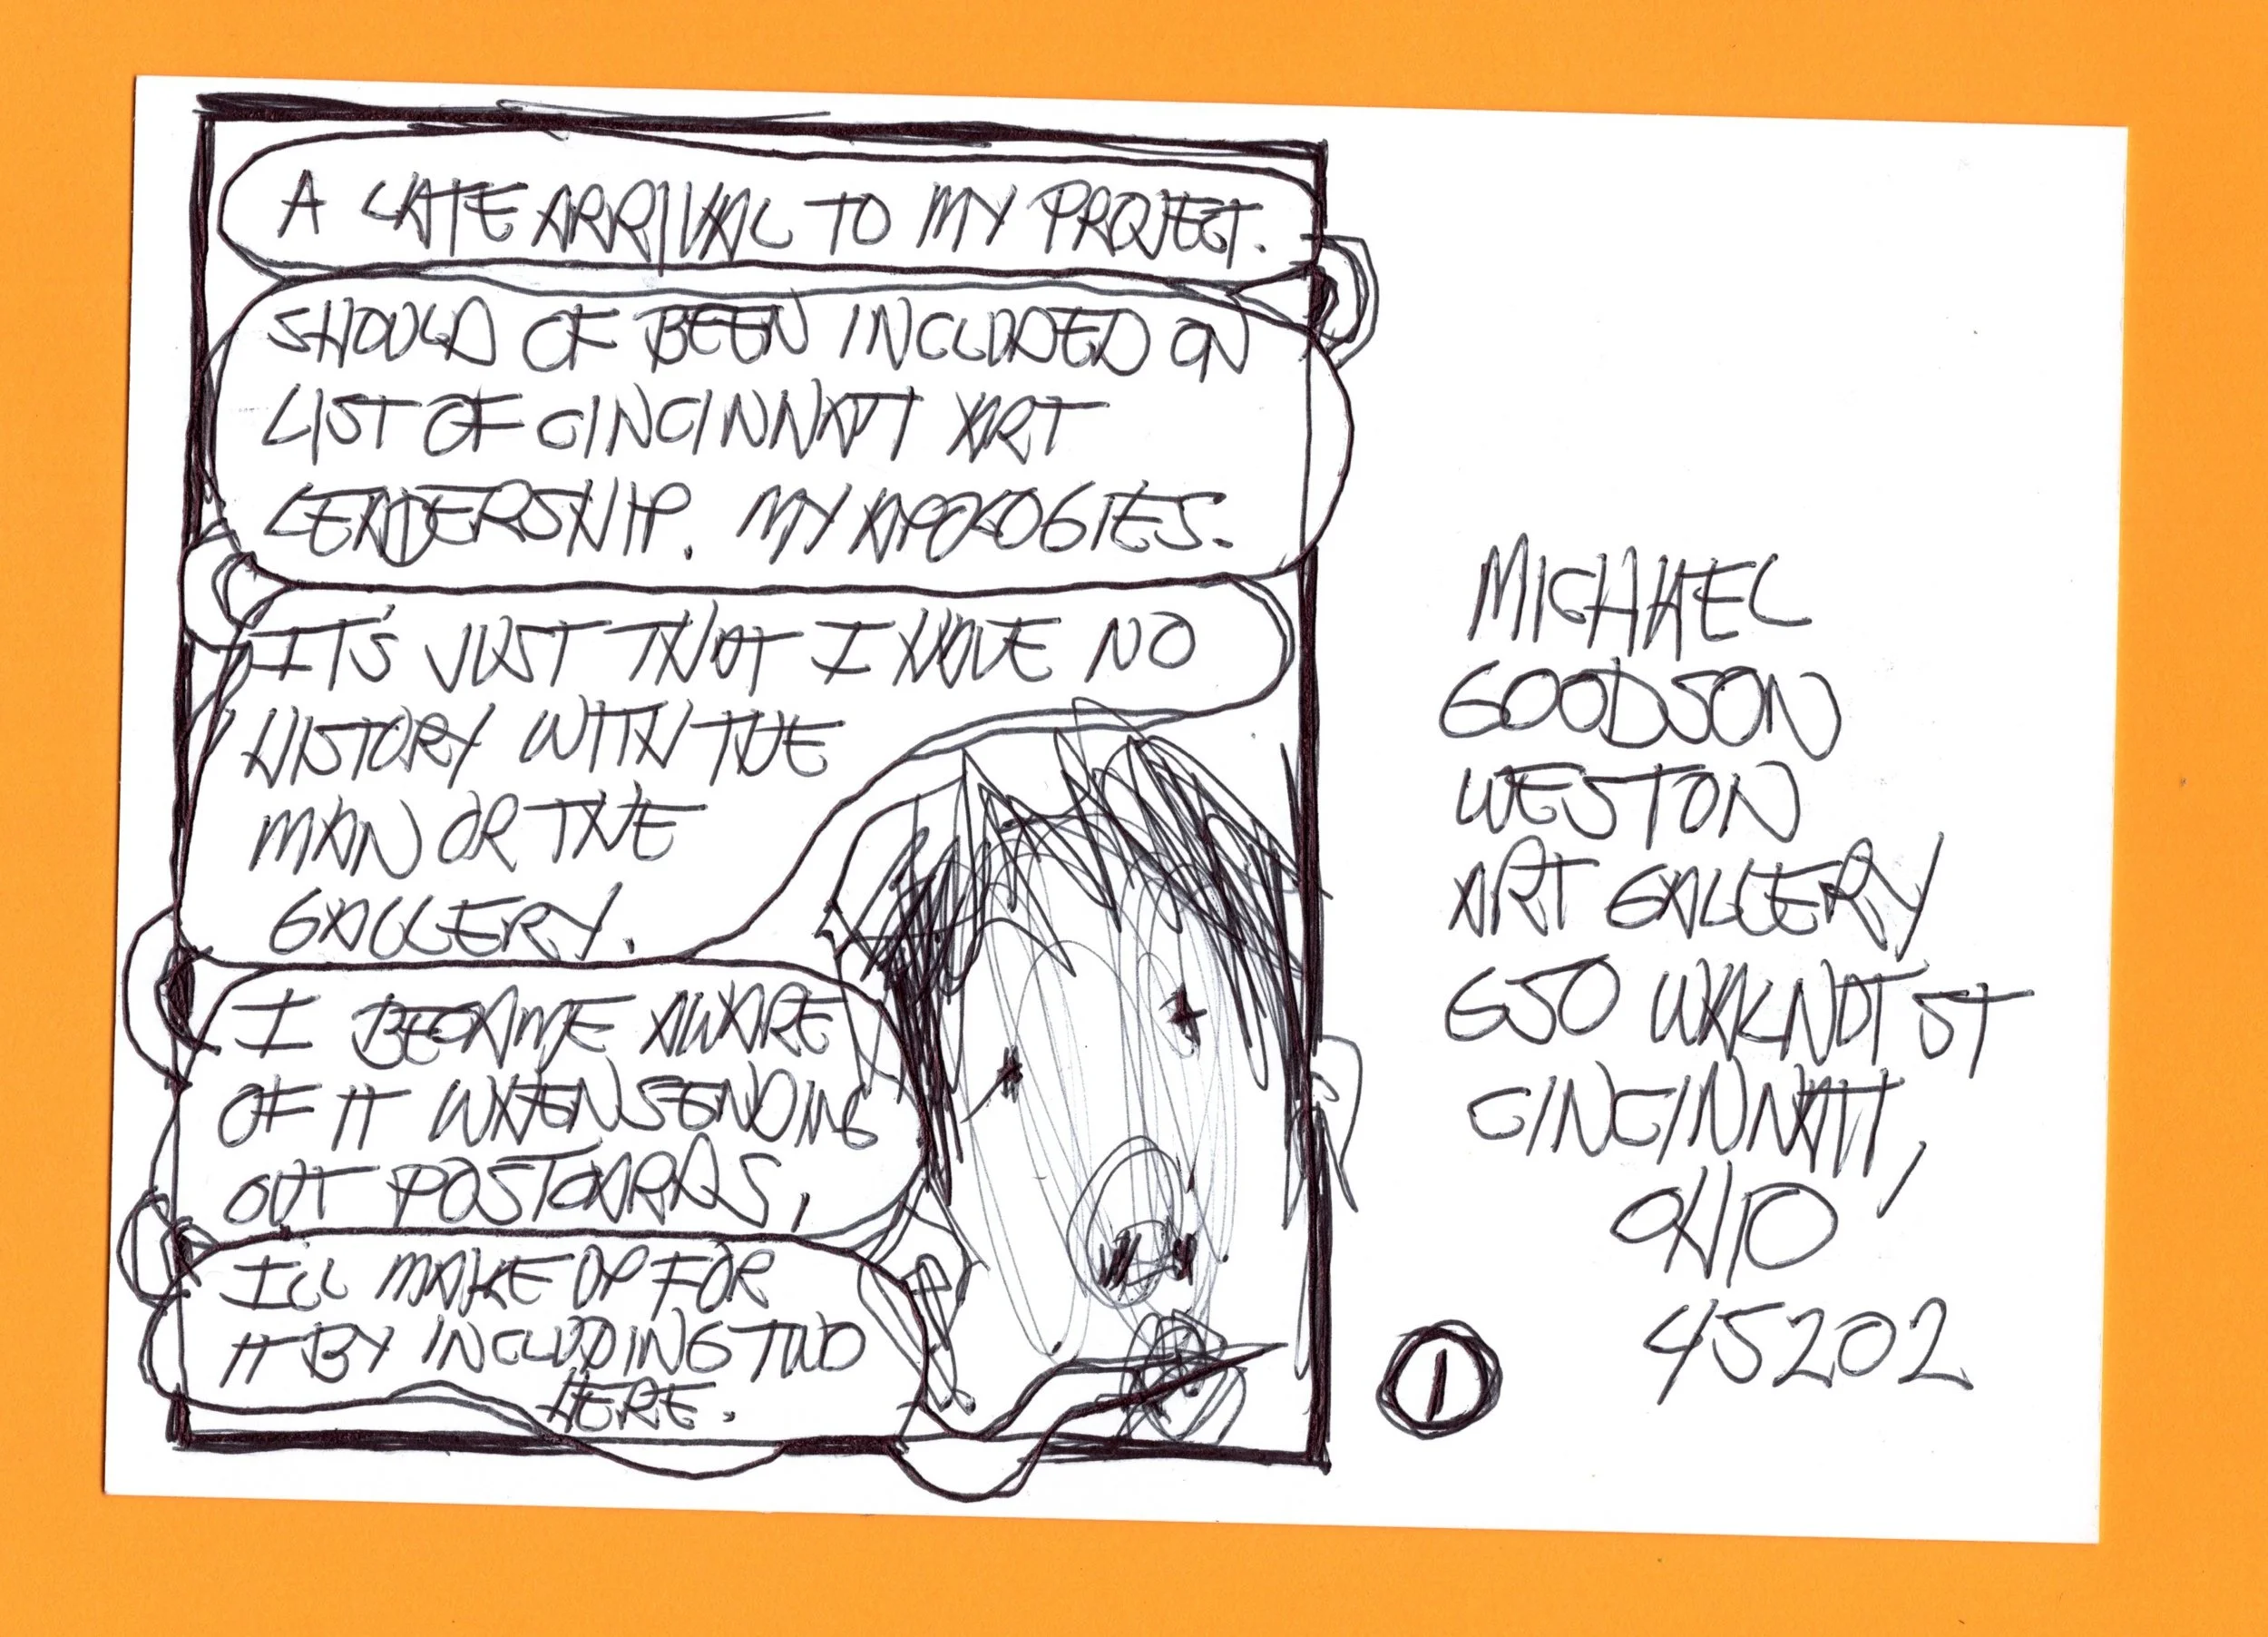 A LATE ARRIVAL TO MY PROJECT.
SHOULD OF BEEN INCLUDED ON
LIST OF CINCINNATI ART
LEADERSHIP. MY APOLOGIES.
IT'S JUST THAT I HAVE NO
HISTORY WITH THE
MAN OR THE
GALLERY.
I BECAME AWARE
OF IT WHEN SENDING
OUT POSTCARDS,
I'LL MAKE UP FOR
IT BY INCLUDING TWO
HERE.
MICHAEL
GOODSON
WESTON
ART GALLERY
650 WALNUT ST
CINCINNATI,
OHIO
45202
1